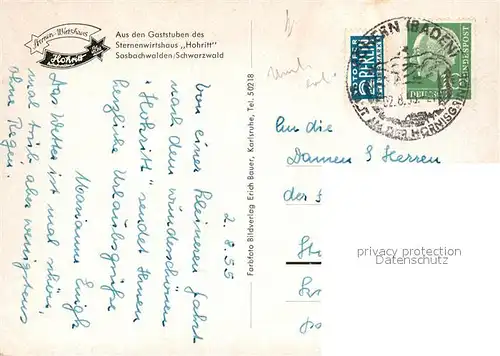 Sternen-Wirtshaus
Hohritt
Aus den Gaststuben des
Sternenwirtshaus „Hohritt"
Sasbachwalden/Schwarzwald
2.8.55
Von einer kleineren Fahrt
nach dem wunderschönen
"Hohritt" sendet Ihnen
herzliche Urlaubsgrüße
Marianne
Das Wetter ist mal schön,
mal trüb, aber wenigstens
ohne Regen.
Farbfoto Bildverlag Erich Bauer, Karlsruhe, Tel. 50218
NOTOPFER
2 BERLIN
STEUERMARKE
BUNDESPOST
ACHERN (BADEN)
AN DER HORNISGRINDE
An die
Damen & Herren
der
privacy protection
Datenschutz